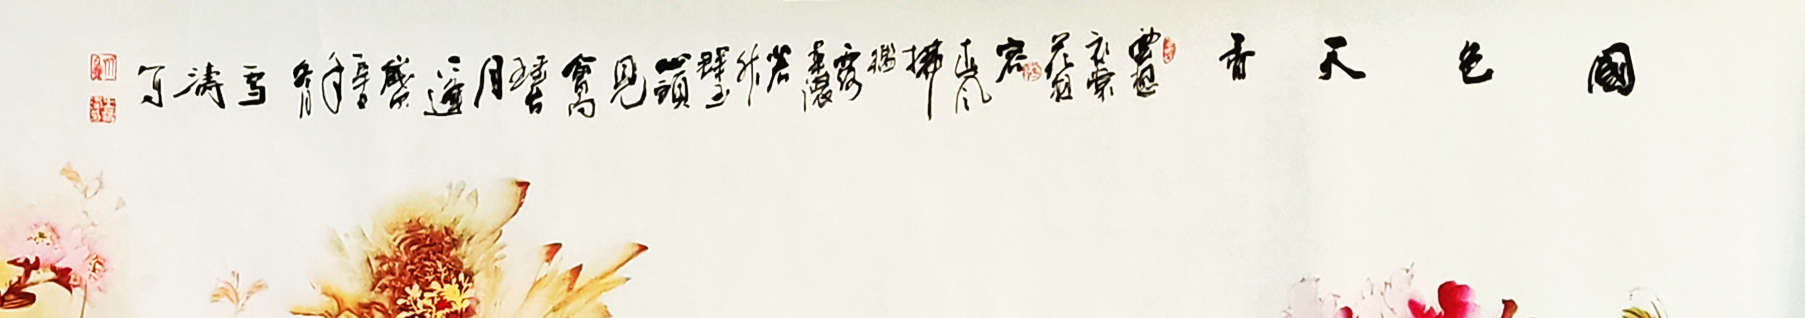 國色天香
雲想衣裳花想容春風拂檻露華濃若非群玉山頭見會向瑤台月下逢
年冬月雪濤寫